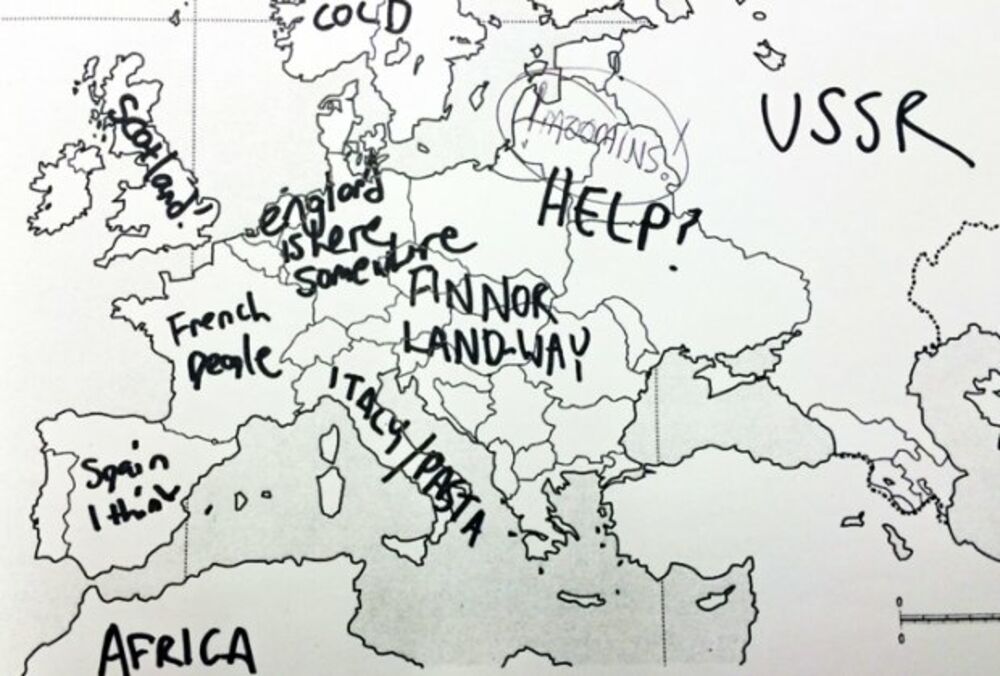 COLD
USSR
Scotland!
HELP?
england
is here
somewhere
FINNOR
LAND-WAY
French
people
ITALY/PASTA
Spain
I think
AFRICA
0
0